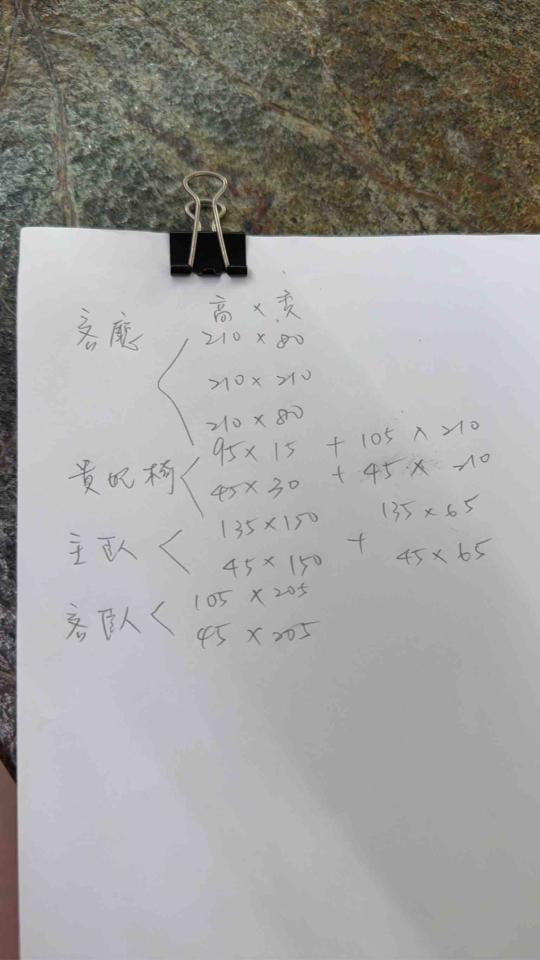 高 × 寬
客廳 210 × 80
210 × 210
210 × 80
貴妃椅 95 × 15 + 105 × 210
45 × 30 + 45 × 210
主臥 135 × 150 + 135 × 65
45 × 150 45 × 65
客臥 105 × 205
45 × 205